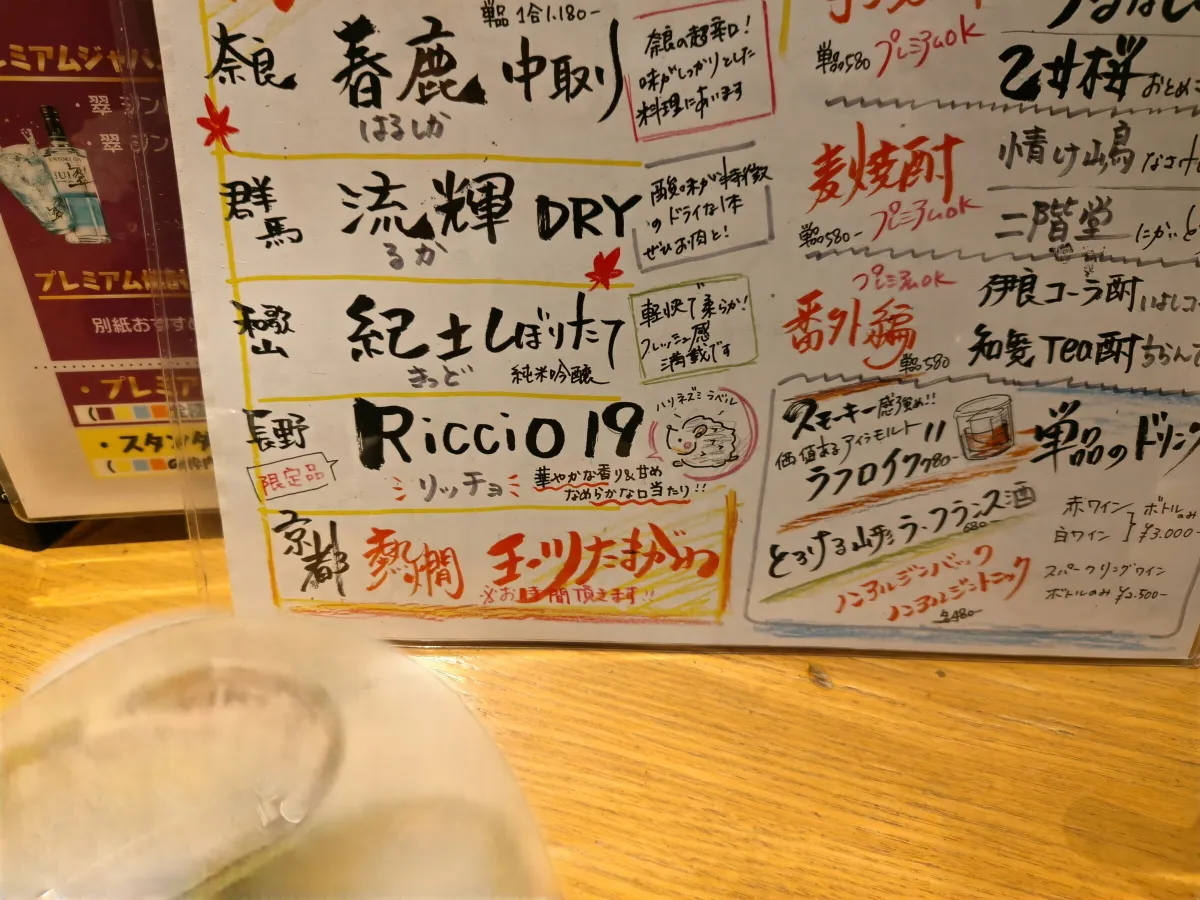 単品 1合1.180-
奈良 春鹿 中取り
はるしか
奈良の超辛口!
味がしっかりとした
料理にあいます
群馬 流輝 DRY
るか
酸味が特徴
のドライな1本
ぜひお肉と!
和歌山 紀土しぼりたて
きっど 純米吟醸
軽快で柔らか!
フレッシュ感
満載です
長野 Riccio 19
限定品
リッチョ
ハリネズミラベル
華やかな香り&甘め
なめらかな口当たり!!
京都 熱燗 玉川たまがわ
※お時間頂きます!!
単品580 プレミアムOK
乙女桜
麦焼酎
プレミアムOK
単品580-
情け嶋
二階堂
プレミアムOK
番外編
単品580
伊良コーラ酎
知覧Tea酎
スモーキー感強め!!
価値あるアイラモルト
ラフロイグ780-
とろける山形ラ・フランス酒
680-
ノンアルジンバック
ノンアルジントニック
各480-
単品のドリンク
赤ワイン
白ワイン
ボトルのみ
¥3.000-
スパークリングワイン
ボトルのみ ¥2.500-
・翠ジン
・翠ジン
別紙おすすめ
・プレミア
・スタンダ